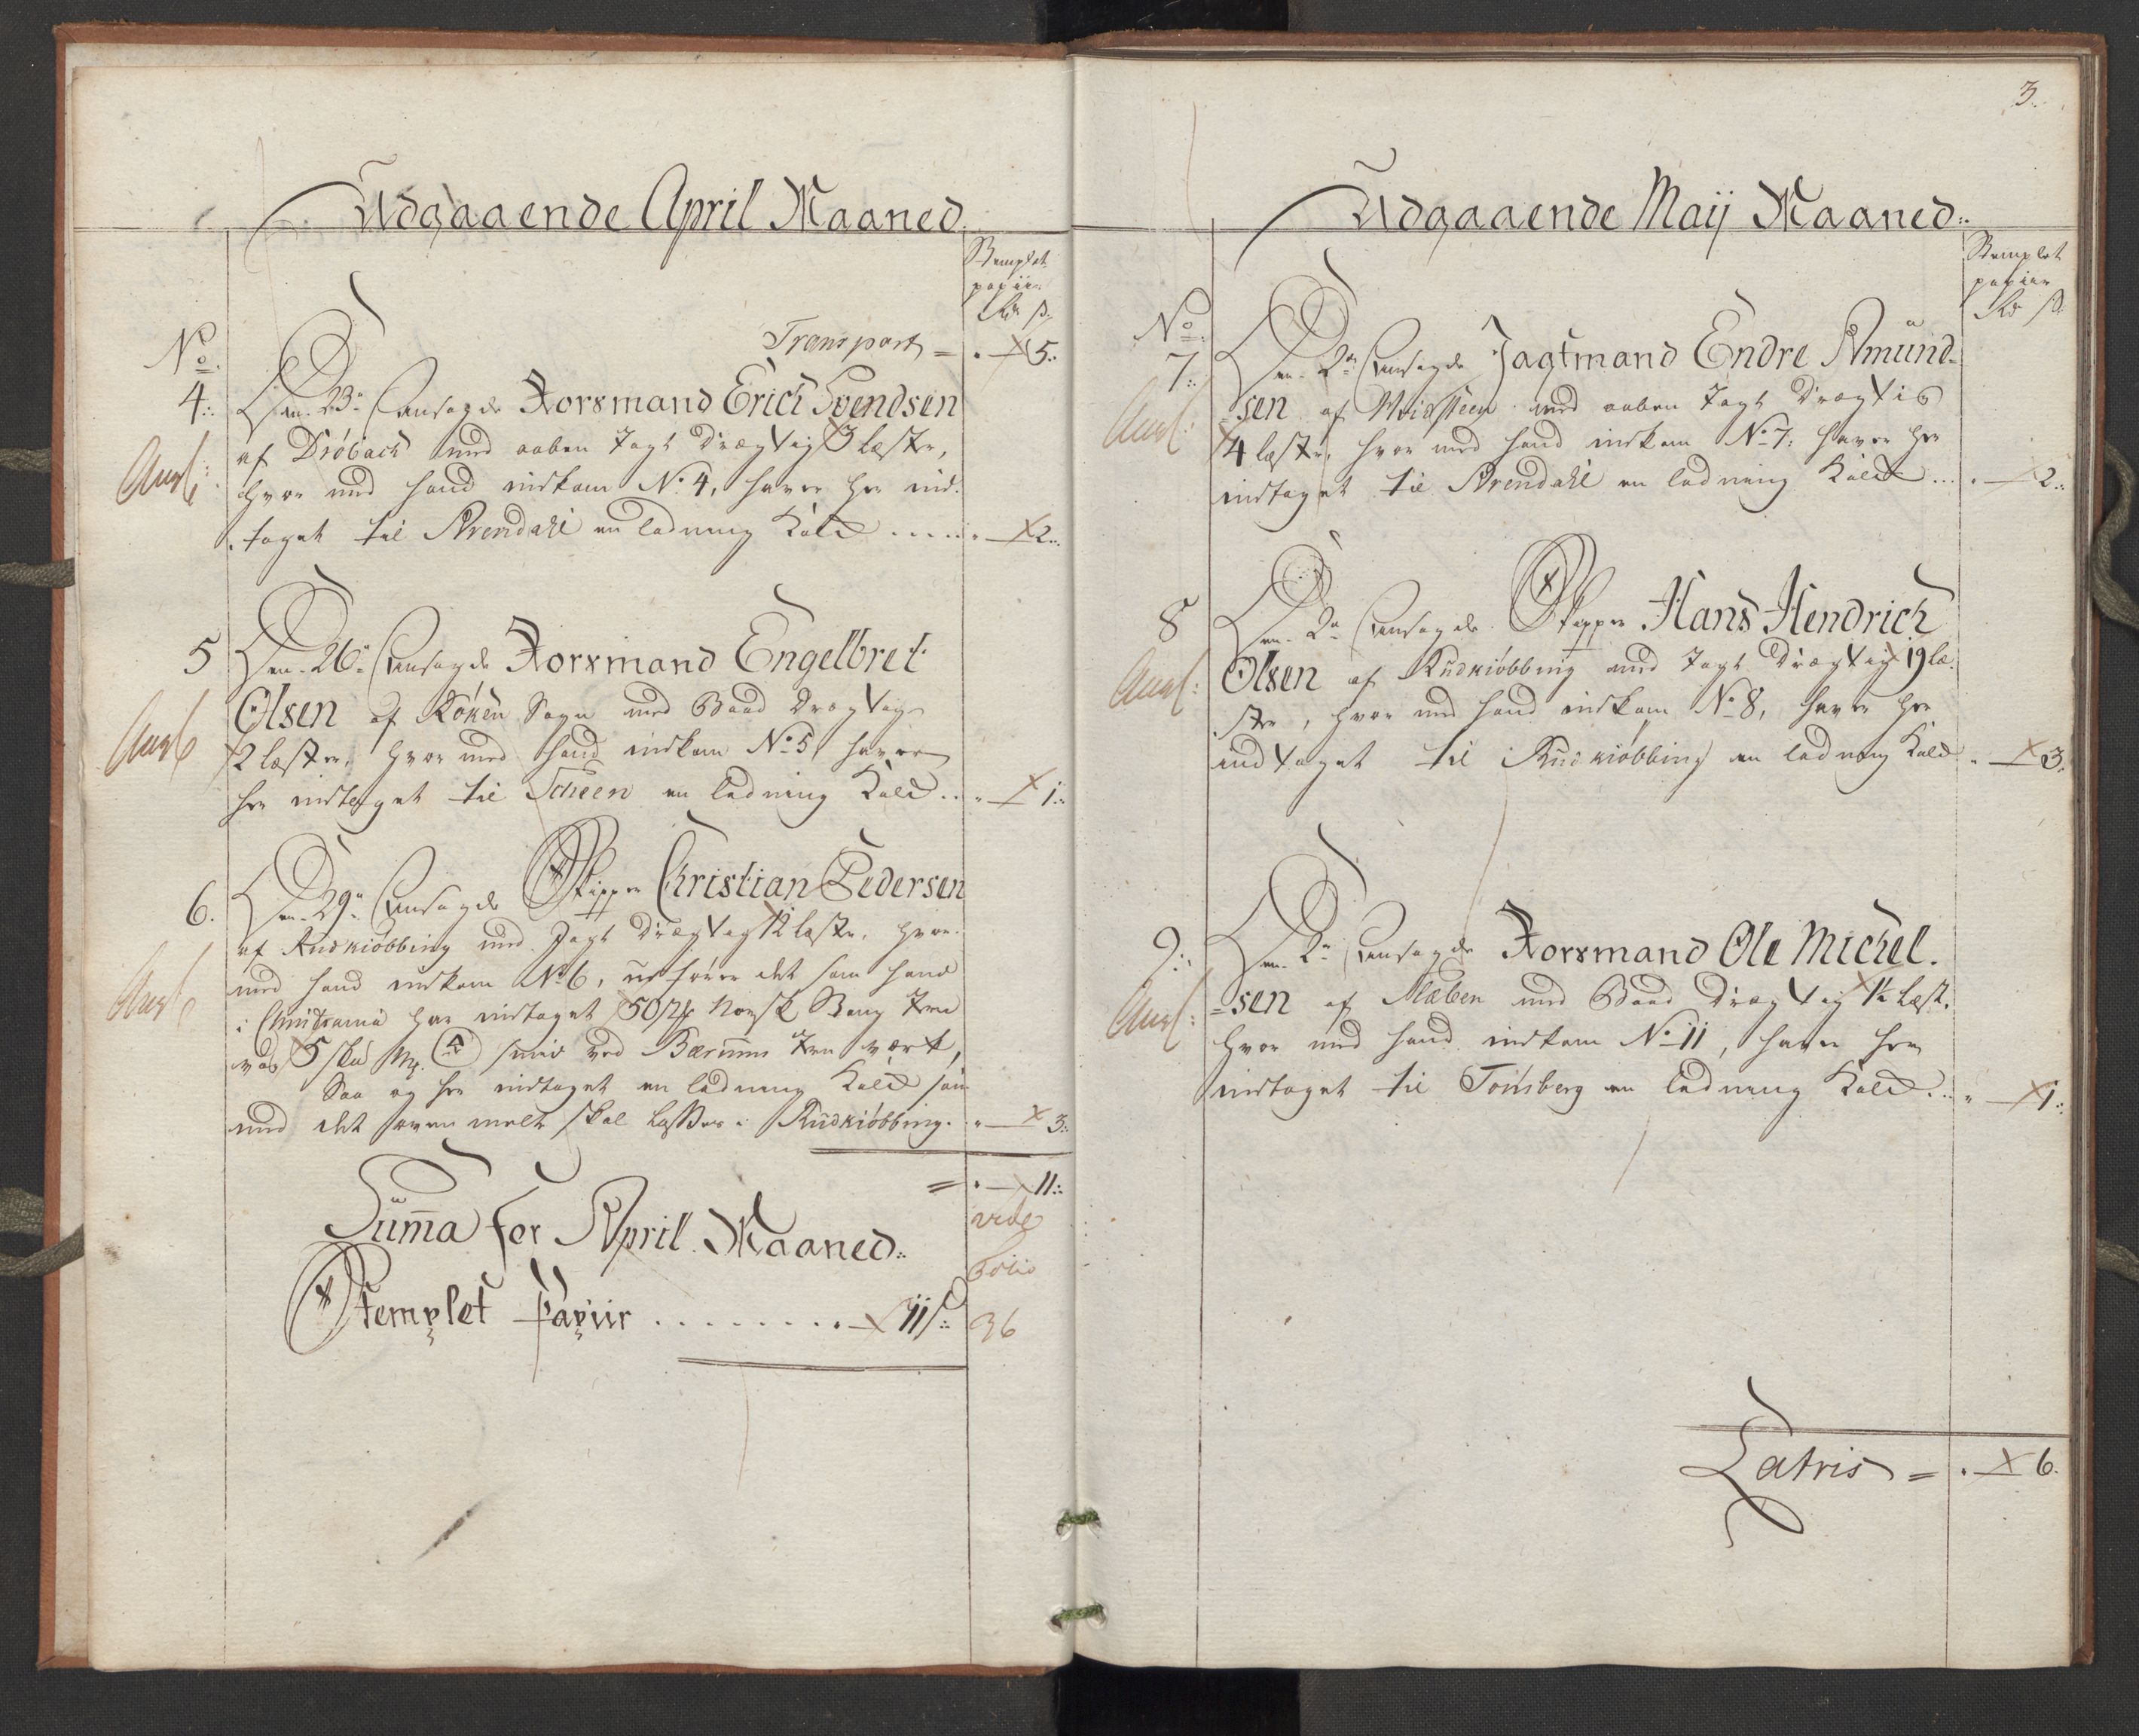 Udgaaende April Maaned
Stemplet
papiir
Rd ß
Transport = . — 5 ..
No
4 .. Den 23de Ansagde Forsmand Erich Svendsen
af Drøbach med aaben Jagt Drægtig 3 læster,
hvor med hand indkom No 4, haver her ind-
taget til Arendahl en ladning Kald ..... — 2 ..
5 Den 26de Ansagde Forsmand Engelbret
Olsen af Røken Sogn med Baad Drægtig
2 læster, hvor med hand indkom No 5, haver
her indtaget til Scheen en ladning Kald .. — 1 ..
6. Den 29de Ansagde Skipper Christian Pedersen
af Rudkiøbbing med Jagt Drægtig 12 læster, hvor-
med hand indkom No 6, udfører det som hand
i Christiania har indtaget 50 Norsk Stang Jern
5 A ved Bærums Jern værk,
Saa og her indtaget en ladning Kald som
med det skal losses i Rudkiøbbing. — 3 ..
= . — 11 ..
Summa for April Maaned ..
Stemplet Papiir ......... 11 ß ..
vide
Folio
36
3.
Udgaaende Maij Maaned ..
Stemplet
papiir
Rd ß
No
7 .. Den 2de Ansagde Jagtmand Endre Amund-
sen af Hvidsteen med aaben Jagt Drægtig
4 læster, hvor med hand indkom No 7. haver her
indtaget til Arendahl en ladning Kald ... . — 2 ..
8 Den 2de Ansagde Skipper Hans Hendrich
Olsen af Rudkiøbbing med Jagt Drægtig 19 læ-
ster, hvor med hand indkom No 8, haver her
indtaget til Rudkiøbbing en ladning Kald — 3.
9 .. Den 2de Ansagde Forsmand Ole Michel-
sen af med Baad Drægtig 1½ læst.
hvor med hand indkom No 11, haver her
indtaget til Tønsberg en ladning Kald ... — 1 ..
Latris = . — 6.